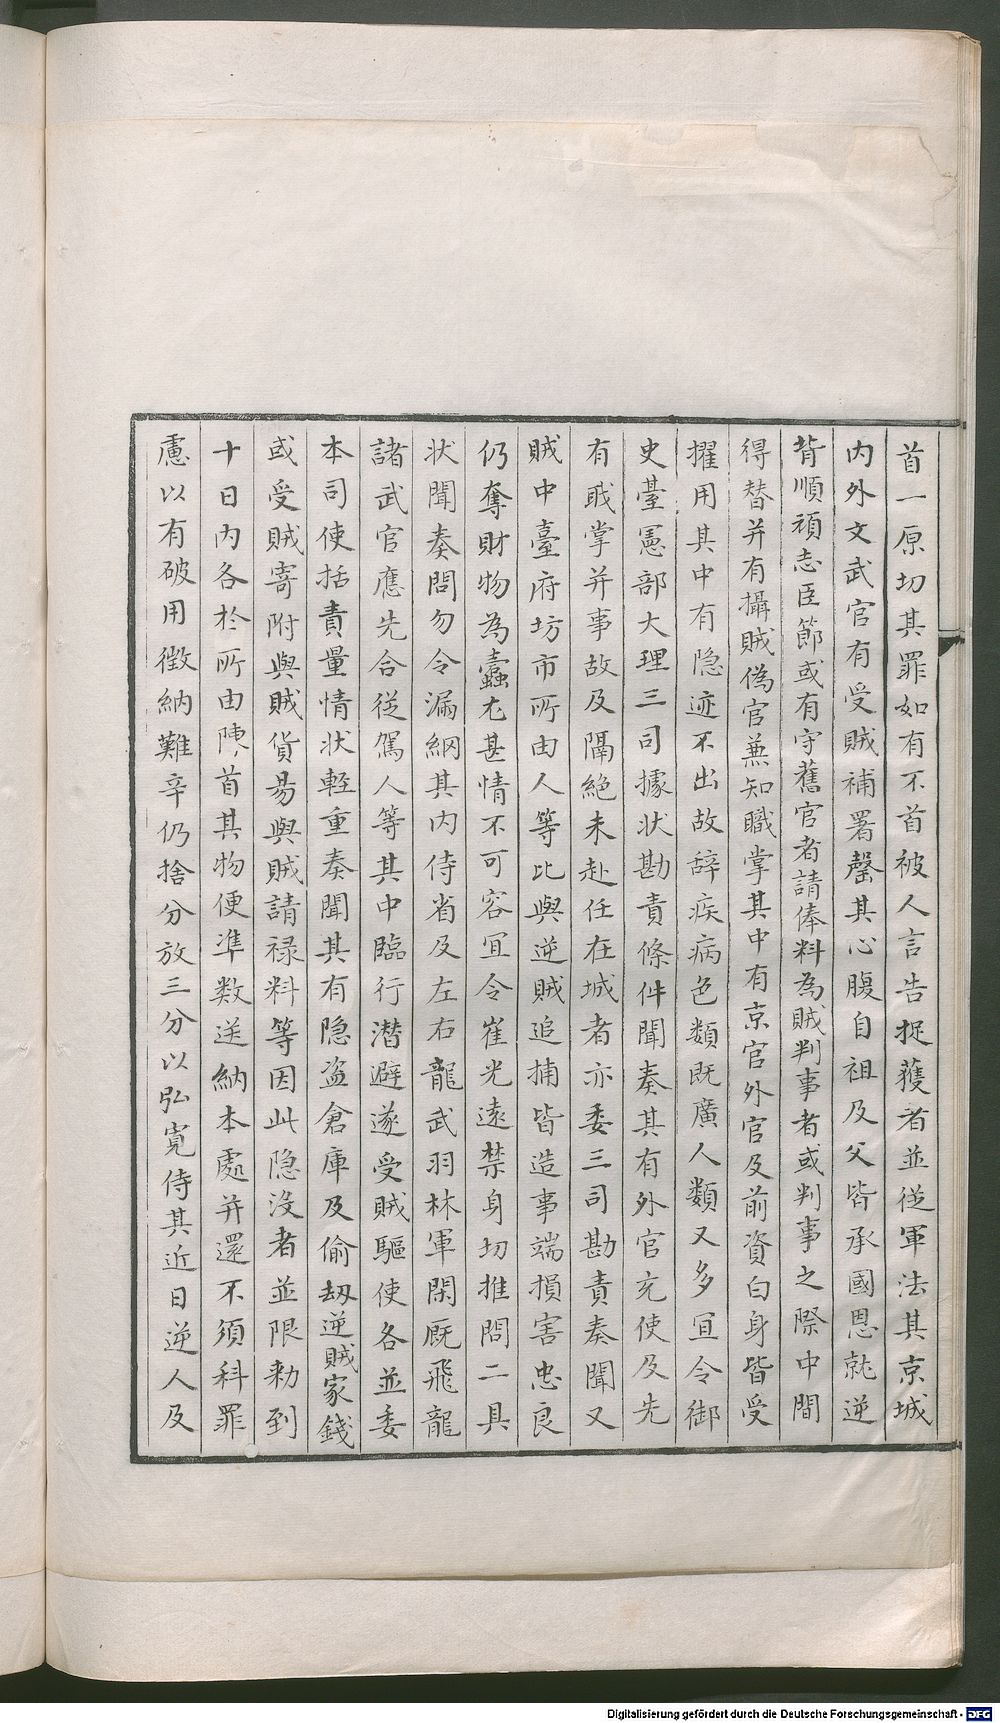 首一原切其罪如有不首被人言告捉獲者並従軍法其京城
内外文武官有受賊補署罄其心腹自祖及父皆承國恩就逆
背順頑志臣節或有守舊官者請俸料為賊判事者或判事之際中間
得替并有攝賊偽官兼知職掌其中有京官外官及前資白身皆受
擢用其中有隐迹不出故辞疾病色類既廣人類又多宜令御
史臺憲部大理三司據状勘責條件聞奏其有外官充使及先
有戢掌并事故及隔絶未赴任在城者亦委三司勘責奏聞又
賊中臺府坊市所由人等比與逆賊追捕皆造事端損害忠良
仍奪財物為蠹尤甚情不可容宜令崔光遠禁身切推問二具
状聞奏問勿令漏網其内侍省及左右龍武羽林軍閑厩飛龍
諸武官應先合従駕人等其中臨行潛避遂受賊驅使各並委
本司使括責量情状輕重奏聞其有隐盗倉庫及偷刼逆賊家錢
或受賊寄附與賊貨易與賊請禄料等因此隐沒者並限勑到
十日内各於所由陳首其物便准数送納本處并還不須科罪
慮以有破用徴納難辛仍捨分放三分以弘寛侍其近日逆人及
Digitalisierung gefördert durch die Deutsche Forschungsgemeinschaft - DFG